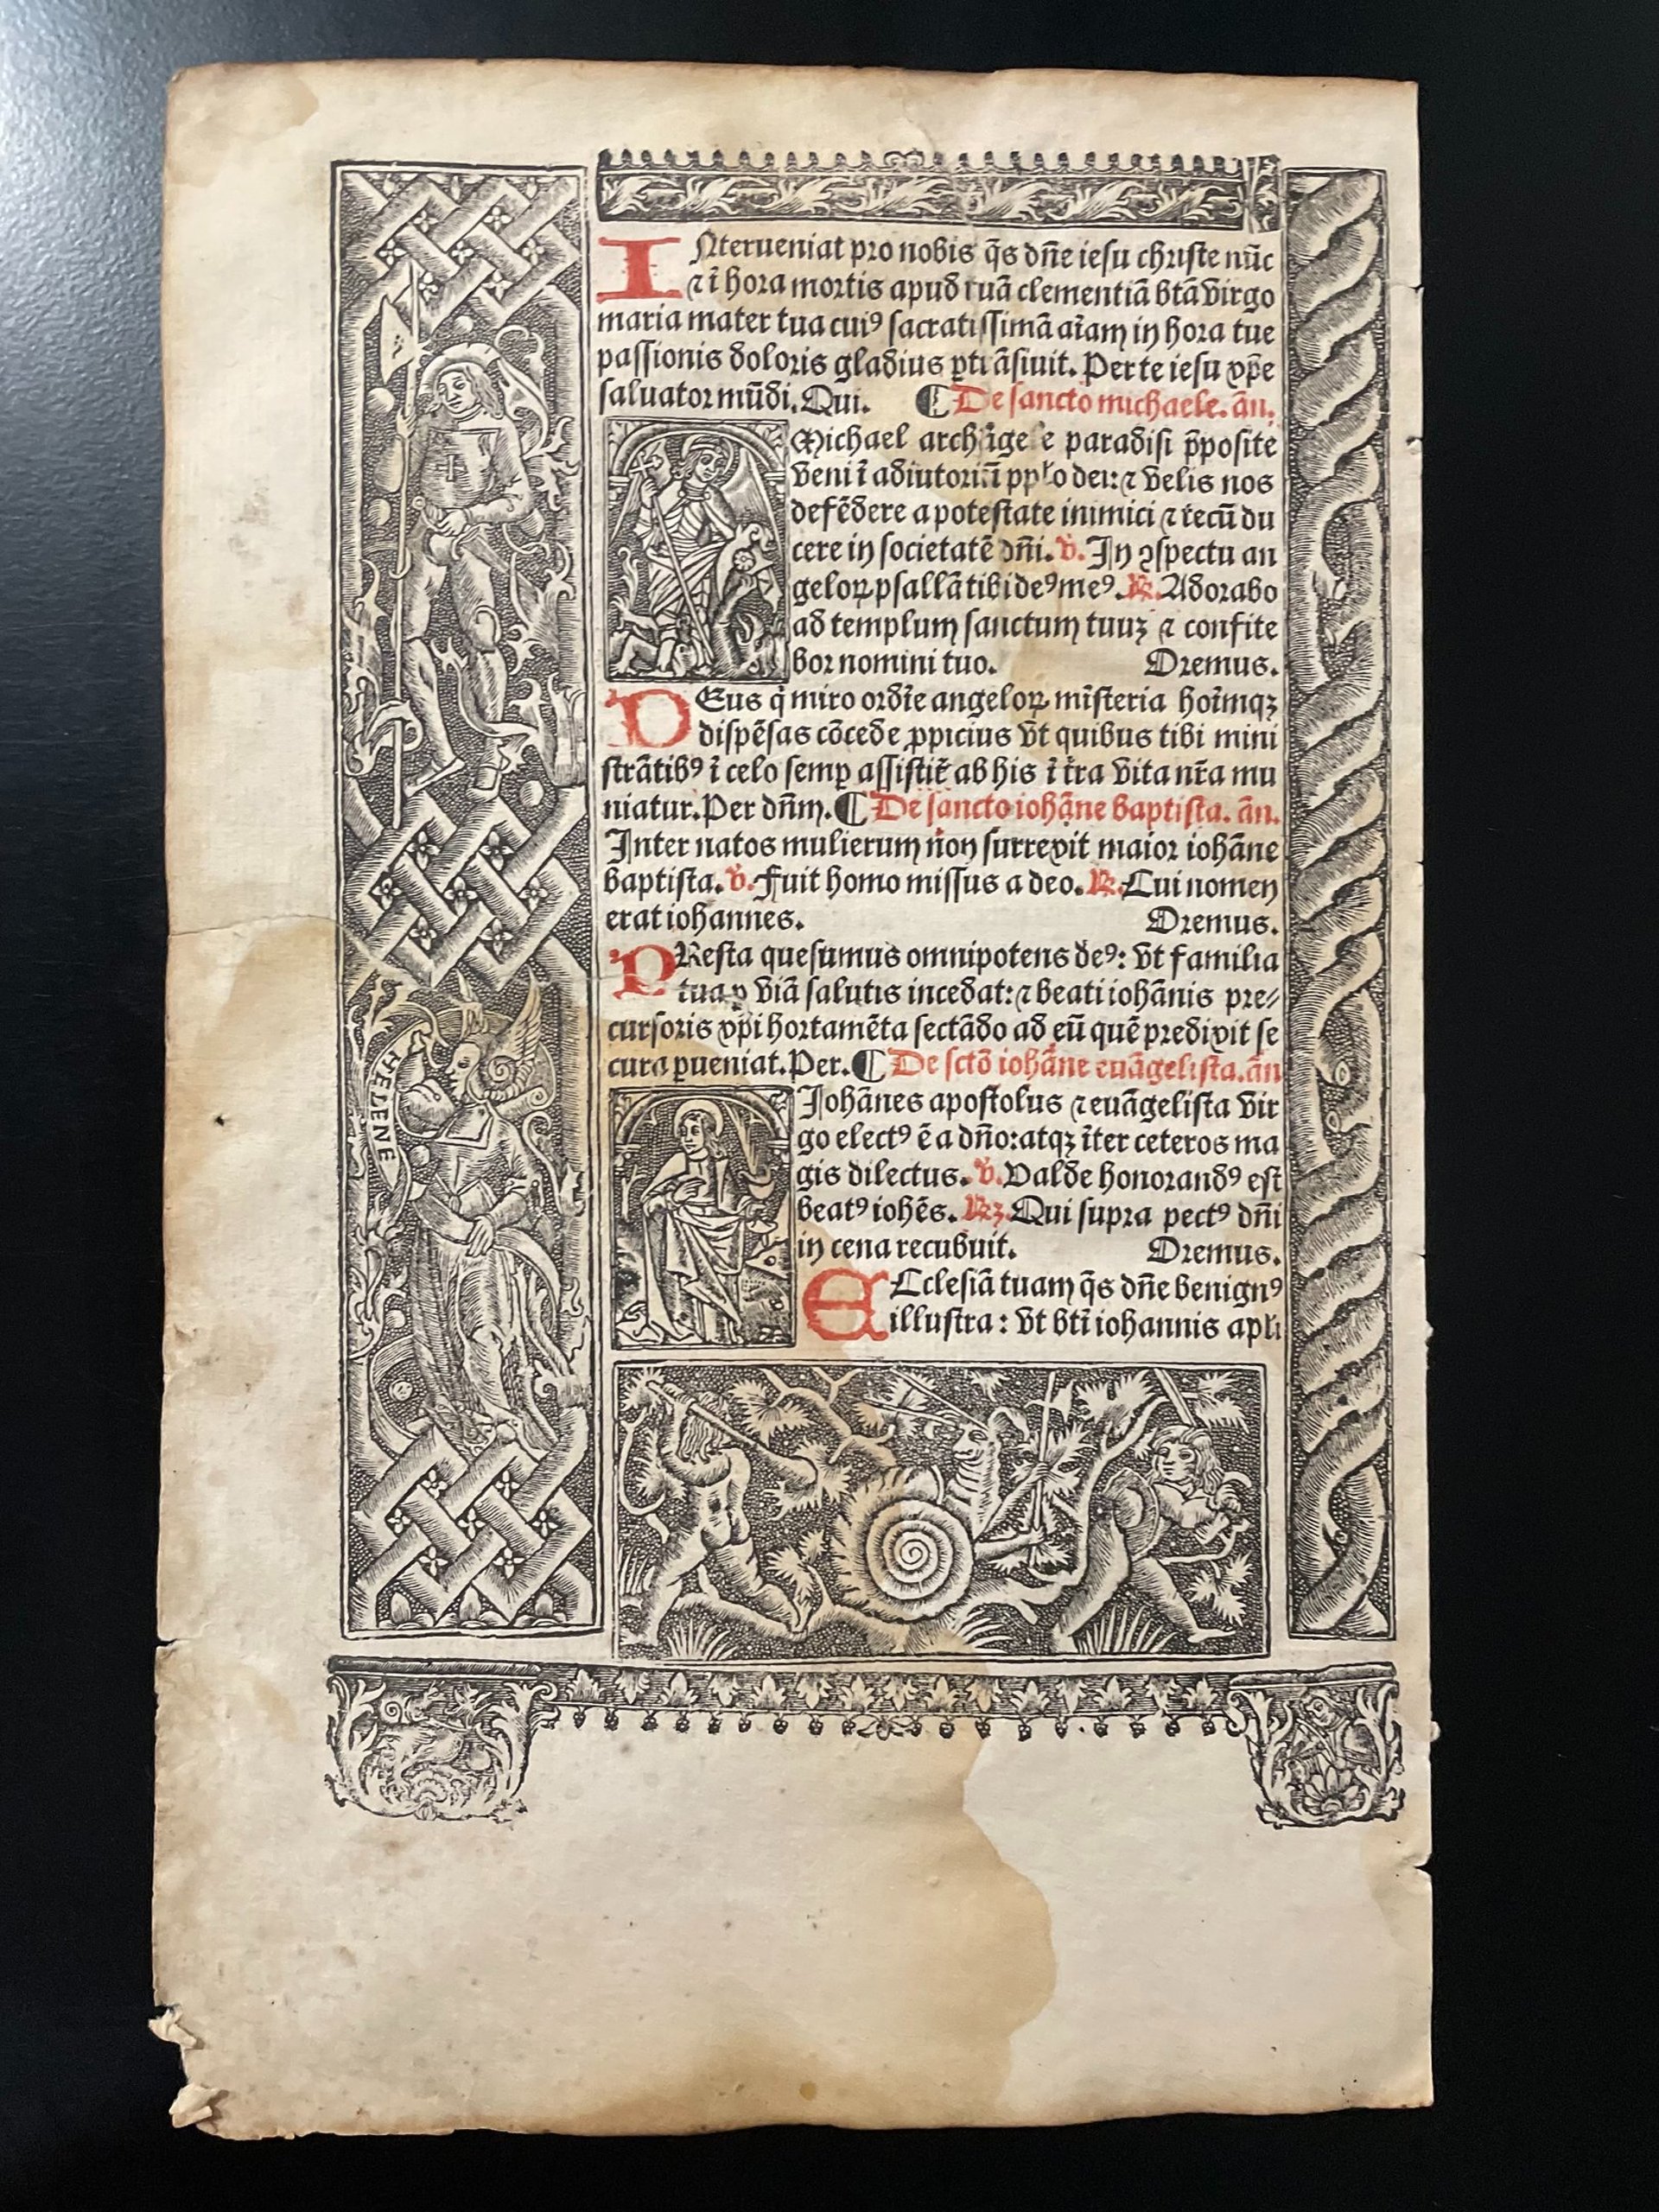 INterueniat pro nobis q̄s dn̄e iesu christe nūc
⁊ ī hora mortis apud tuā clementiā btā virgo
maria mater tua cuiꝰ sacratissimā aīam in hora tue
passionis doloris gladius ꝑtrāsiuit. Per te iesu xp̄e
saluator mūdi. Qui. ¶ De sancto michaele. añ.
Michael archāgele paradisi p̄posite
veni ī adiutoriū pplo dei: ⁊ velis nos
defēdere a potestate inimici ⁊ tecū du
cere in societatē dn̄i. v̄. In ꝯspectu an
geloꝝ psallā tibi deꝰ meꝰ. ℟. Adorabo
ad templum sanctum tuuꝫ ⁊ confite
bor nomini tuo. Oremus.
DEus q̄ miro ordīe angeloꝝ mīsteria hoīmqꝫ
dispēsas cōcede ꝓpicius vt quibus tibi mini
strātibꝰ ī celo semꝑ assistiť ab his ī tr̄a vita nr̄a mu
niatur. Per dn̄m. ¶ De sancto iohāne baptista. añ.
Inter natos mulierum non surrexit maior iohāne
baptista. v̄. Fuit homo missus a deo. ℟. Cui nomen
erat iohannes. Oremus.
PResta quesumus omnipotens deꝰ: vt familia
tua ꝑ viā salutis incedat: ⁊ beati iohānis pre⸗
cursoris xp̄i hortamēta sectādo ad eū quē predixit se
cura ꝑueniat. Per. ¶ De sctō iohāne euāgelista. añ
Johānes apostolus ⁊ euāgelista vir
go electꝰ ē a dn̄o: atqꝫ īter ceteros ma
gis dilectus. v̄. Valde honorandꝰ est
beatꝰ iohēs. ℟. Qui supra pectꝰ dn̄i
in cena recubuit. Oremus.
ECclesiā tuam q̄s dn̄e benignꝰ
illustra: vt btī iohannis apli
HELENE